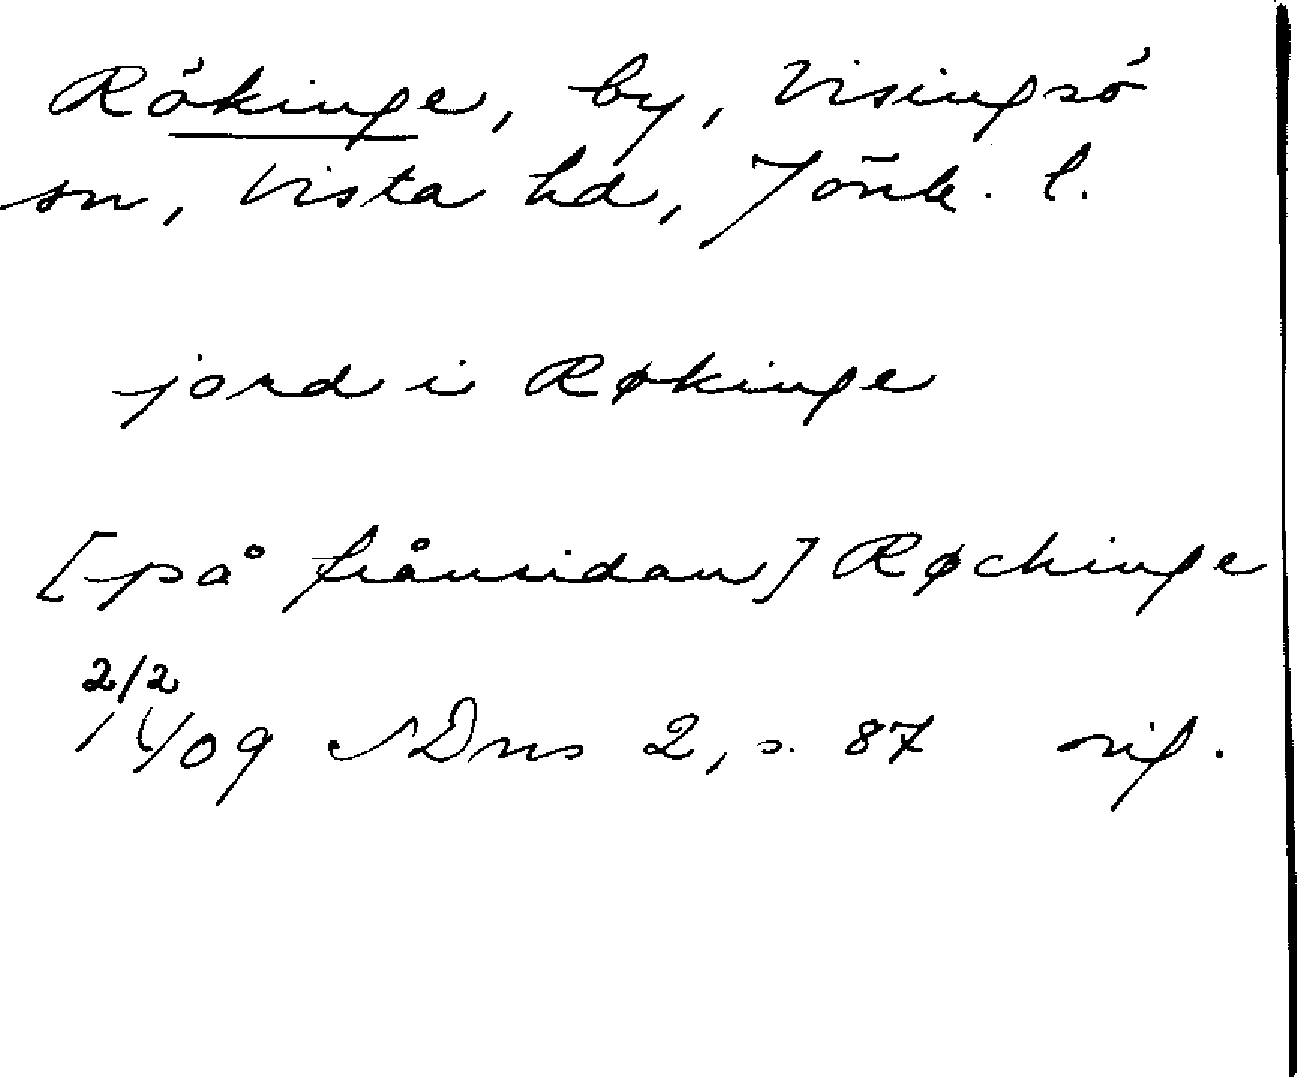 Rökinge, by, Visingsö
sn, Vista hd, Jönk. l.
jord i Røkinge
[på frånsidan] Røckinge
2/2
1409 SDns 2, s. 87 orig.